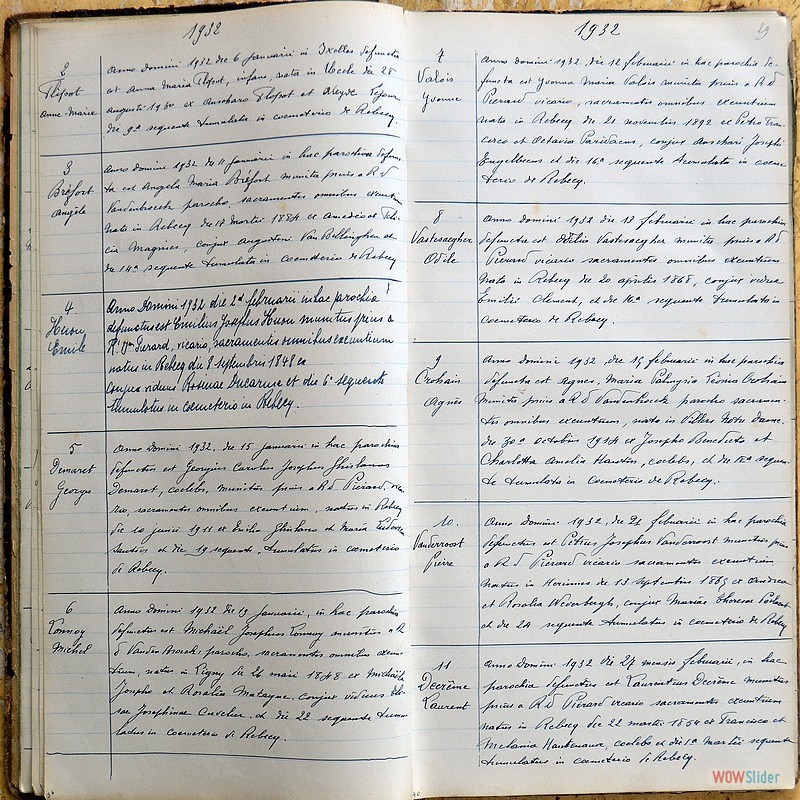 1932
2
Anno Domini 1932 die 6 Januarii in Ixelles defuncta
est Anna Maria infans, nata in Uccle die 28
Anne Marie
Augusti 1930 ex et
die 9a sequente tumulata in coemeterio de Rebecq.
3
Bréfort
Angèle
Anno domini 1932 die 11 Januarii in hac parochia defunc
ta est Angela Maria Bréfort munita prius a R d
Vandenhoeck parocho, sacramentis omnibus exeuntium
nata in Rebecq die 18 Martii 1884 ex Amedio et
Magnies, conjux Augustini Van Bellinghen et
die 14a sequente tumulata in coemeterio de Rebecq
4.
Huon
Emile
Anno Domini 1932 die 2a februarii in hac parochia
defunctus est Emilius Josephus Huon munitus prius a
R. Dno Pierard, vicario, sacramentis omnibus exeuntium
natus in Rebecq die 8 septembris 1848 ex
conjux viduus Rosinae Ducarme et die 6a sequente
tumulatus in coemeterio in Rebecq.
5
Demaret
Georges
Anno Domini 1932, die 15 Januarii in hac parochia
defunctus est Georgius Carolus Josephus Ghislenus
Demaret, coelebs, munitus prius a R d Pierard, vica
rio, sacramentis omnibus exeuntium, natus in Rebecq
die 10 junii 1911 ex Emilio Ghislano et Maria
et die 19 sequente tumulatus in coemeterio
de Rebecq.
6
Lannoy
Michel
Anno Domini 1932 die 19 Januarii, in hac parochia
defunctus est Michaël Josephus Lannoy munitus a R
d Vandenhoeck parocho, sacramentis omnibus exeun
tium, natus in Ligny die 26 maii 1848 ex Michaële
Josepho et Rosalia Matagne, conjux viduus
Josephinae Cuvelier, et die 22 sequente tumu
latus in coemeterio de Rebecq.
1932
29
7
Valois
Yvonne
Anno Domini 1932, die 12 februarii in hac parochia de
functa est Yvonna Maria Valois munita prius a R d
Pierard vicario, sacramentis omnibus exeuntium
nata in Rebecq die 21 novembris 1892 ex Petro Fran
cisco et Octavia Paridaens, conjux Anschari Josephi
Engelbeen et die 16a sequente tumulata in coeme
terio de Rebecq.
8
Vastesaegher
Odile
Anno domini 1932 die 12 februarii in hac parochia
defuncta est Odilia Vastesaegher munita prius a R d
Pierard vicario sacramentis omnibus exeuntium
nata in Rebecq die 20 aprilis 1868, conjux vidua
Emilii Clement, et die 16a sequente tumulata in
coemeterio de Rebecq.
9
Crohain
Agnès
Anno Domini 1932, die 15 februarii in hac parochia
defuncta est Agnes, Maria Crohain
munita prius a R d Vandenhoeck parocho sacramen
tis omnibus exeuntium, nata in Villers Notre Dame
die 30a octobris 1914 ex Josepho Benedicto et
Charlotta Amelia coelebs, et die 18a sequen
te tumulata in coemeterio de Rebecq.
10.
Vanderroost
Pierre
Anno Domini 1932, die 21 februarii in hac parochia
defunctus est Petrus Josephus Vanderroost munitus prius
a R d Pierard vicario sacramentis exeuntium
natus in Herinnes die 13 septembris 1865 ex Andrea
et Rosalia Weverbergh, conjux Mariae Theresae
et die 24 sequente tumulatus in coemeterio de Rebecq
11
Decrème
Laurent
Anno Domini 1932 die 27 mensis februarii, in hac
parochia defunctus est Laurentius Decrème munitus
prius a R d Pierard vicario sacramentis exeuntium
natus in Rebecq die 22 martii 1854 ex Francisco et
Melania Hautenauve, coelebs et die 1a Martii sequente
tumulatus in coemeterio de Rebecq.
WOWSlider